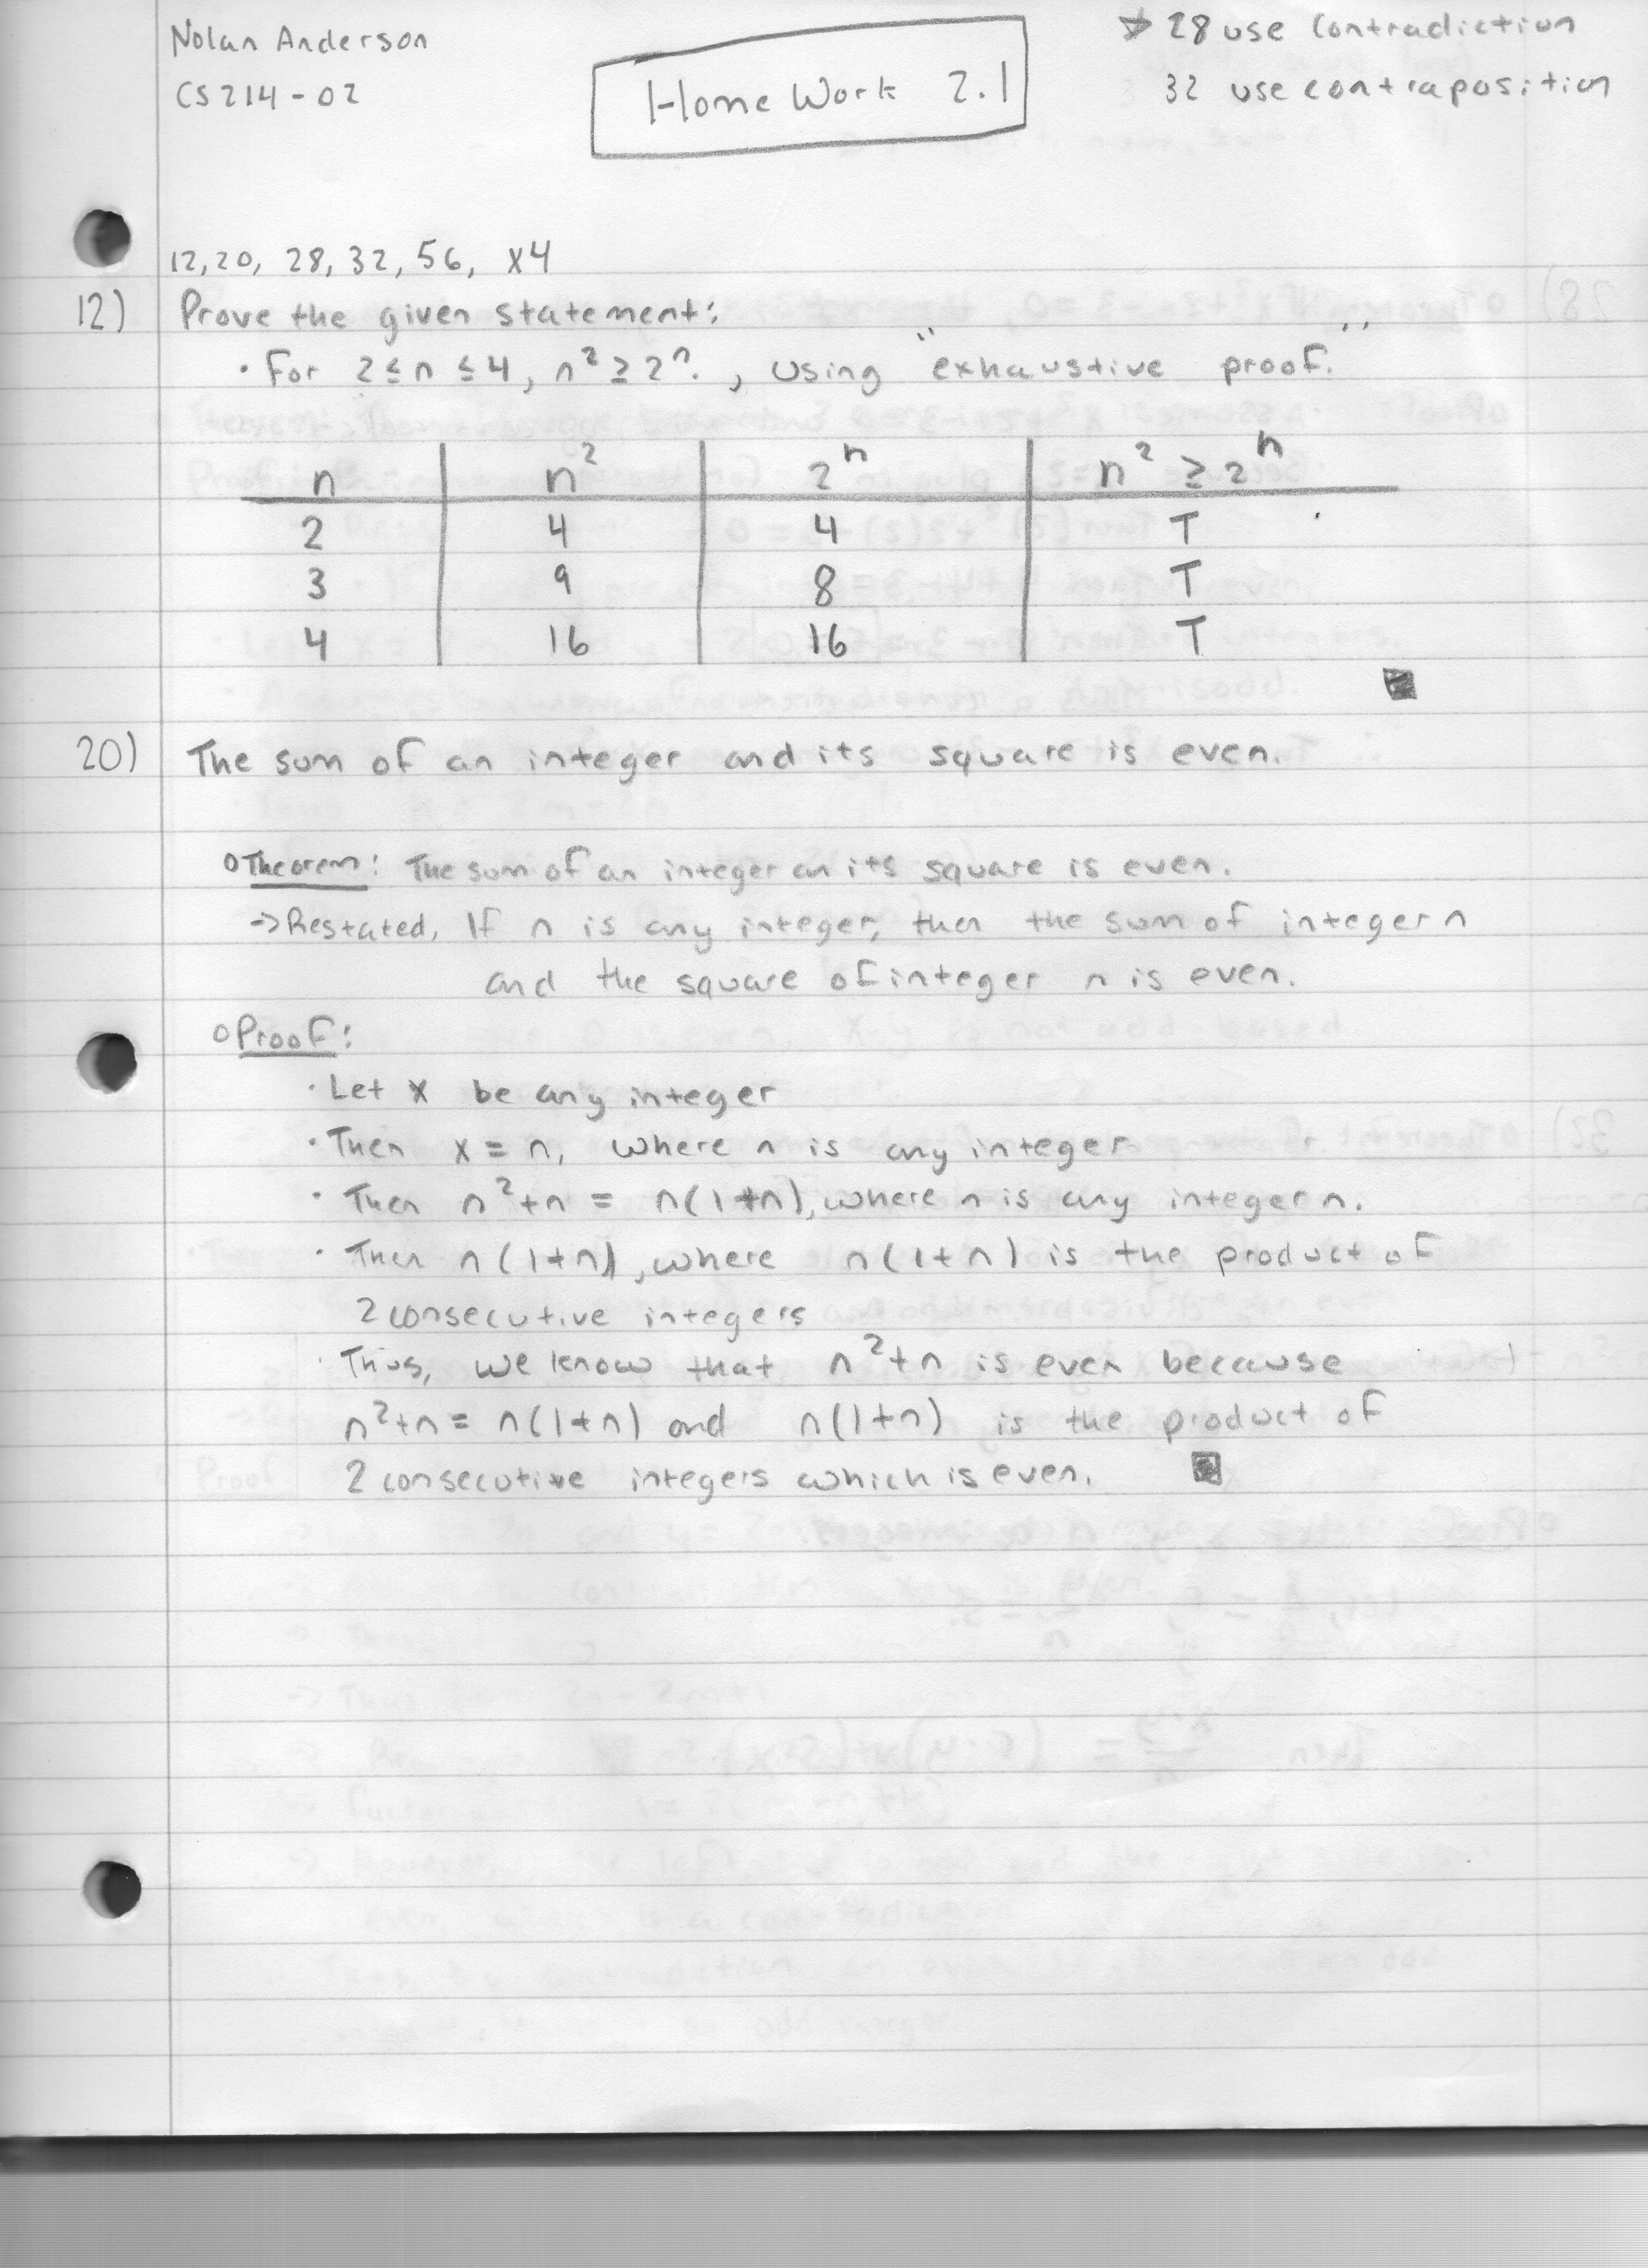 Nolan Anderson
CS214-02
Home Work 2.1
28 use Contradiction
32 use contraposition
12,20, 28,32,56, x4
12) Prove the given statement:
• For 2 ≤ n ≤ 4, n² ≥ 2ⁿ., Using "exhaustive proof."
n n² 2ⁿ n² ≥ 2ⁿ
2 4 4 T
3 9 8 T
4 16 16 T
20) The sum of an integer and its square is even.
Theorem: The sum of an integer an its square is even.
-> Restated, If n is any integer, then the sum of integer n
and the square of integer n is even.
Proof:
• Let x be any integer
• Then x = n, where n is any integer
• Then n²+n = n(1+n), where n is any integer n.
• Then n(1+n), where n(1+n) is the product of
2 consecutive integers
• Thus, we know that n²+n is even because
n²+n = n(1+n) and n(1+n) is the product of
2 consecutive integers which is even.